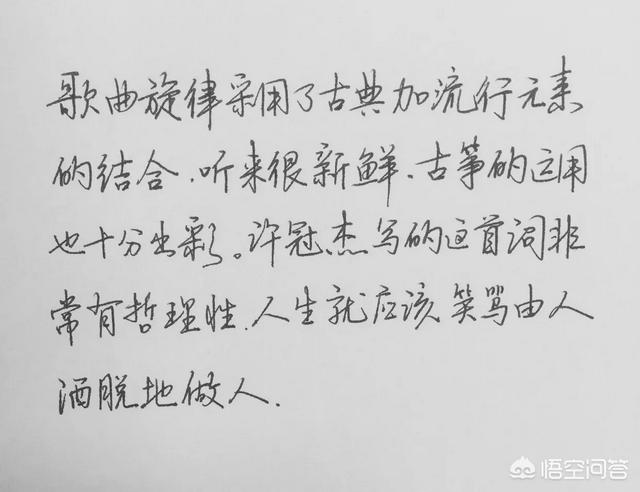 歌曲旋律采用了古典加流行元素
的结合.听来很新鲜.古筝的运用
也十分出彩。许冠杰写的这首词非
常有哲理性.人生就应该笑骂由人
洒脱地做人.
悟空问答